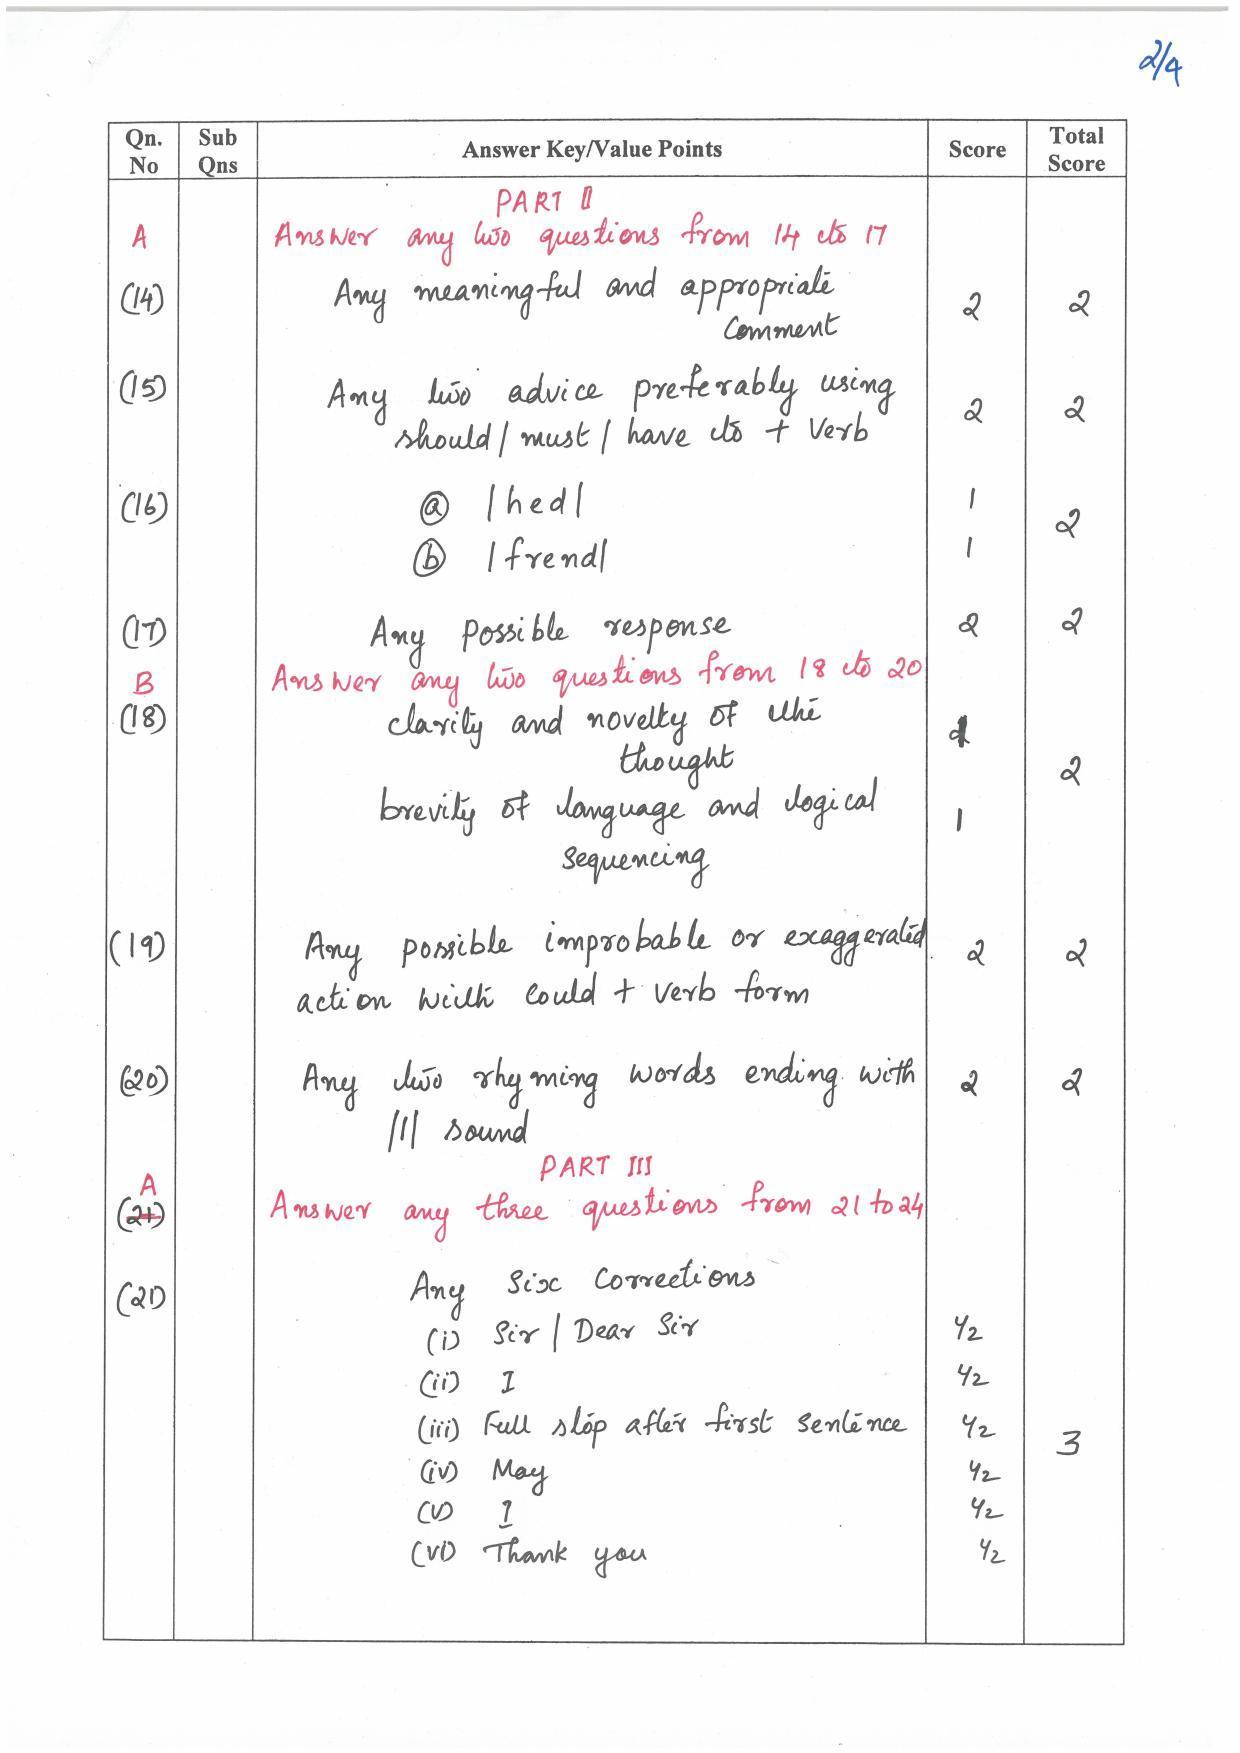 2/4
Qn. No Sub Qns Answer Key/Value Points Score Total Score
PART II
A Answer any two questions from 14 to 17
(14) Any meaningful and appropriate 2 2
comment
(15) Any two advice preferably using 2 2
should/must/have to + verb
(16) (a) /hed/ 1 2
(b) /frend/ 1
(17) Any possible response 2 2
B Answer any two questions from 18 to 20
(18) clarity and novelty of the 1
thought 2
brevity of language and logical 1
sequencing
(19) Any possible improbable or exaggerated 2 2
action with could + verb form
(20) Any two rhyming words ending with 2 2
/l/ sound
PART III
A
(21) Answer any three questions from 21 to 24
(21) Any six corrections
(i) Sir/Dear Sir 1/2
(ii) I 1/2
(iii) Full stop after first sentence 1/2 3
(iv) May 1/2
(v) I 1/2
(vi) Thank you 1/2